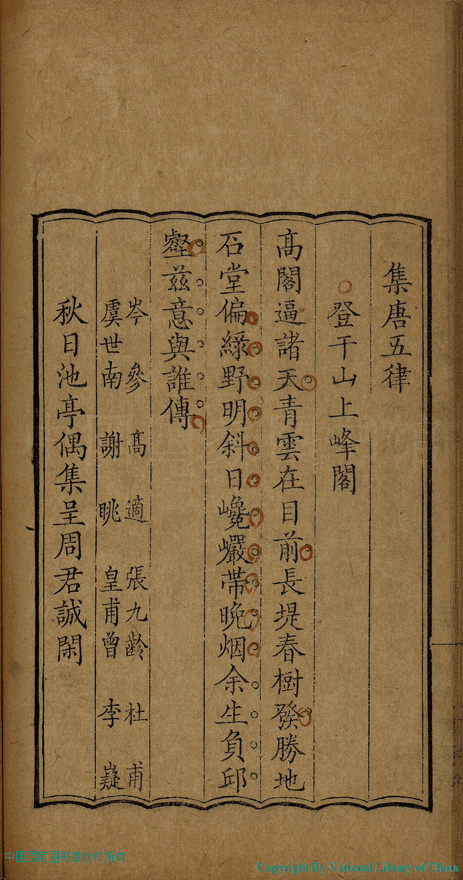 集唐五律
登干山上峰閣
高閣逼諸天青雲在目前長堤春樹發勝地
石堂偏綠野明斜日巉巖帶晚烟余生負邱
壑兹意與誰傳
岑參 高適 張九齡 杜甫
虞世南 謝眺 皇甫曾 李嶷
秋日池亭偶集呈周君誠閑
Copyright By National Library of China